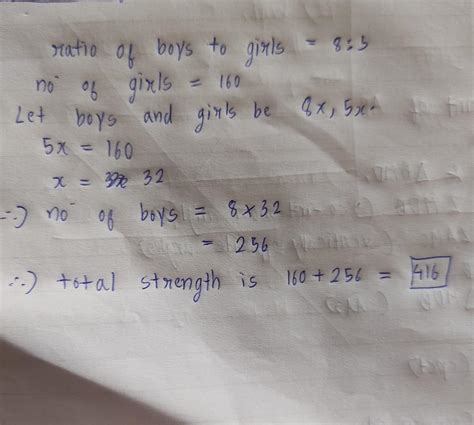 ratio of boys to girls = 8:5
no of girls = 160
Let boys and girls be 8x, 5x.
5x = 160
x = 32
∴) no of boys = 8 × 32
= 256
∴) total strength is 160 + 256 = 416